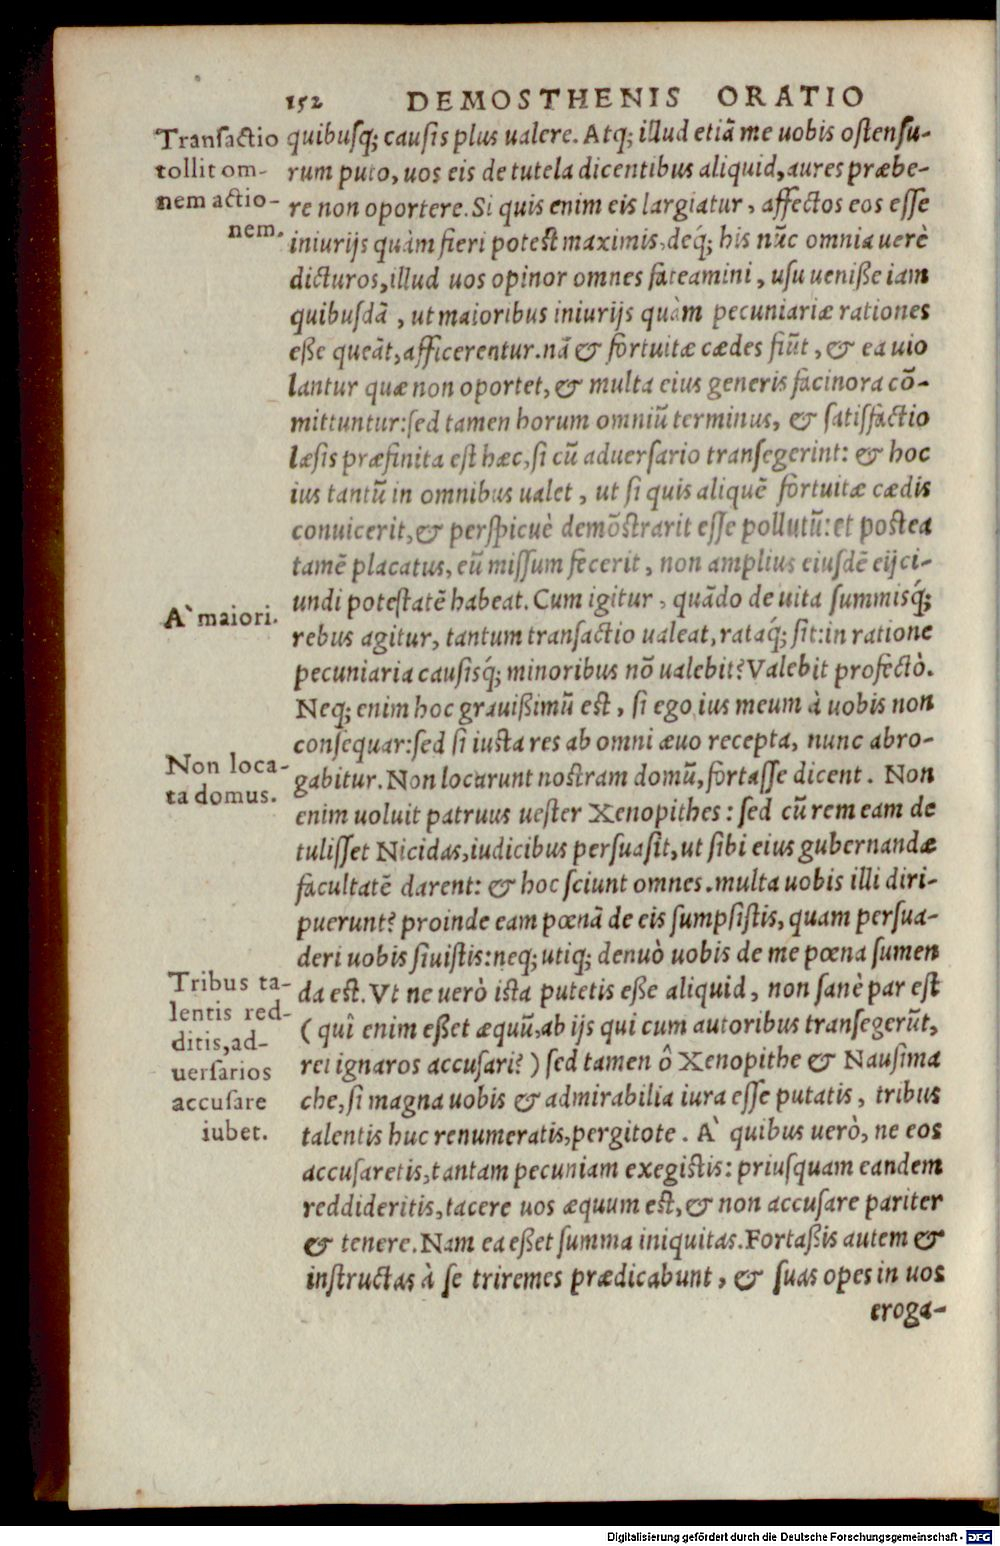 152 DEMOSTHENIS ORATIO
Transactio
tollit om-
nem actio-
nem.
quibusq; causis plus ualere. Atq; illud etiã me uobis ostensu-
rum puto, uos eis de tutela dicentibus aliquid, aures præbe-
re non oportere. Si quis enim eis largiatur, affectos eos esse
iniurijs quàm fieri potest maximis, deq́; his nũc omnia uerè
dicturos, illud uos opinor omnes fateamini, usu ueniße iam
quibusdã, ut maioribus iniurijs quàm pecuniariæ rationes
eße queãt, afficerentur. nã & fortuitæ cædes fiũt, & ea uio
lantur quæ non oportet, & multa eius generis facinora cõ-
mittuntur: sed tamen horum omniũ terminus, & satisfactio
læsis præfinita est hæc, si cũ aduersario transegerint: & hoc
ius tantũ in omnibus ualet, ut si quis aliquẽ fortuitæ cædis
conuicerit, & perspicuè demõstrarit esse pollutũ: et postea
tamẽ placatus, eũ missum fecerit, non amplius eiusdẽ eijci-
undi potestatẽ habeat. Cum igitur, quãdo de uita summisq́;
rebus agitur, tantum transactio ualeat, rataq́; sit: in ratione
pecuniaria causisq́; minoribus nõ ualebit? Valebit profectò.
Neq; enim hoc grauißimũ est, si ego ius meum à uobis non
consequar: sed si iusta res ab omni æuo recepta, nunc abro-
gabitur. Non locarunt nostram domũ, fortasse dicent. Non
enim uoluit patruus uester Xenopithes: sed cũ rem eam de
tulisset Nicidas, iudicibus persuasit, ut sibi eius gubernandæ
facultatẽ darent: & hoc sciunt omnes. multa uobis illi diri-
puerunt? proinde eam pœnã de eis sumpsistis, quam persua-
deri uobis siuistis: neq; utiq; denuò uobis de me pœna sumen
da est. Vt ne uerò ista putetis eße aliquid, non sanè par est
(quî enim eßet æquũ, ab ijs qui cum autoribus transegerũt,
rei ignaros accusari?) sed tamen ô Xenopithe & Nausima
che, si magna uobis & admirabilia iura esse putatis, tribus
talentis huc renumeratis, pergitote. A` quibus uerò, ne eos
accusaretis, tantam pecuniam exegistis: priusquam eandem
reddideritis, tacere uos æquum est, & non accusare pariter
& tenere. Nam ea eßet summa iniquitas. Fortaßis autem &
instructas à se triremes prædicabunt, & suas opes in uos
eroga-
A` maiori.
Non loca-
ta domus.
Tribus ta-
lentis red-
ditis, ad-
uersarios
accusare
iubet.
Digitalisierung gefördert durch die Deutsche Forschungsgemeinschaft - DFG